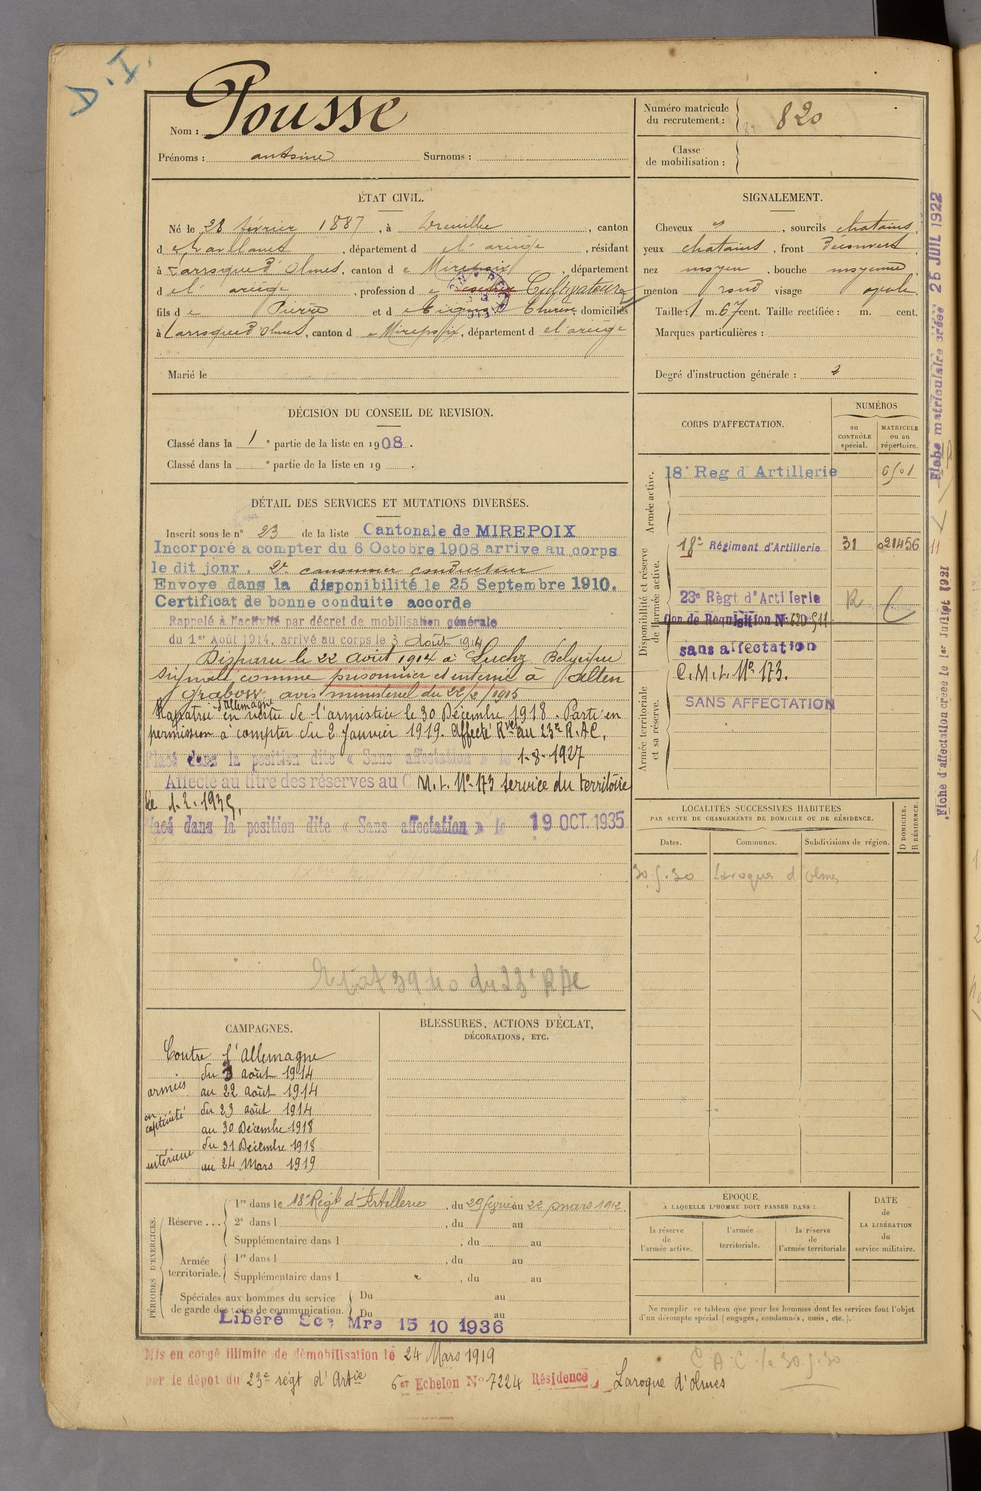 D.I.
Nom : Pousse
Prénoms : antoine Surnoms :
Numéro matricule du recrutement : 820
Classe de mobilisation :
ÉTAT CIVIL.
Né le 28 février 1887, à Dreuilhe, canton
d e Lavelanet, département d e l'ariège, résidant
à Larroque d'Olmes, canton d e Mirepoix, département
d e l'ariège, profession d e Cultivateur
fils d e Pierre et d domiciliés
à Larroque d'Olmes, canton d e Mirepoix, département d e l'ariège
Marié le
SIGNALEMENT.
Cheveux, sourcils chatains,
yeux chatains, front Découvert
nez moyen, bouche moyenne
menton rond visage ovale.
Taille : 1 m. 67 cent. Taille rectifiée : m. cent.
Marques particulières :
Degré d'instruction générale : 3
DÉCISION DU CONSEIL DE REVISION.
Classé dans la 1 e partie de la liste en 1908.
Classé dans la e partie de la liste en 19 .
DÉTAIL DES SERVICES ET MUTATIONS DIVERSES.
Inscrit sous le n° 23 de la liste Cantonale de MIREPOIX
Incorporé a compter du 6 Octobre 1908 arrive au corps
le dit jour. 2e canonnier conducteur
Envoye dans la disponibilité le 25 Septembre 1910.
Certificat de bonne conduite accorde
Rappelé à l'activité par décret de mobilisation générale
du 1er Août 1914, arrivé au corps le 3 août 1914
Disparu le 22 août 1914 à Luchy Belgique
signalé comme prisonnier et interné à Alten
Grabow, avis ministériel du 22/2/1915
Rapatrié d'allemagne en vertu de l'armistice le 30 Décembre 1918. Parti en
permission à compter du 2 Janvier 1919. Affecté Rvé au 23e R.A.C.
Placé dans la position dite « Sans affectation » le 1-8-1927
Affecté au titre des réserves au C.M.I. N° 173 service du territoire
le 1.2.1935.
Placé dans la position dite « Sans affectation » le 19 OCT. 1935
39 40 du 23e RAC
CORPS D'AFFECTATION.
NUMÉROS
au CONTRÔLE spécial.
MATRICULE ou au répertoire.
Armée active.
18e Reg d'Artillerie
Disponibilité et réserve de l'armée active.
18e Régiment d'Artillerie 31 021456
23e Règt d'Artillerie R
de Réquisition N°
sans affectation
Armée territoriale et sa réserve.
C.M.I. N° 173.
SANS AFFECTATION
Fiche matriculaire créée 25 JUIL 1922
Fiche d'affectation créée le 1er Juillet 1921
LOCALITÉS SUCCESSIVES HABITÉES
PAR SUITE DE CHANGEMENTS DE DOMICILE OU DE RÉSIDENCE.
Dates. Communes. Subdivisions de région. D DOMICILE. R RÉSIDENCE.
30.5.30 Laroque d'Olmes
CAMPAGNES.
Contre l'Allemagne
armées du 3 août 1914
au 22 août 1914
en captivité du 23 août 1914
au 30 Décembre 1918
intérieur du 31 Décembre 1918
au 24 Mars 1919
BLESSURES, ACTIONS D'ÉCLAT,
DÉCORATIONS, ETC.
PÉRIODES D'EXERCICES.
Réserve ... 1re dans le 18e Régt d'Artillerie, du 29 février au 22 mars 1912.
2e dans l , du au
Supplémentaire dans l , du au
Armée territoriale. 1re dans l , du au
Supplémentaire dans l , du au
Spéciales aux hommes du service de garde des voies de communication. Du au
Du au
Libéré Mre 15 10 1936
ÉPOQUE
À LAQUELLE L'HOMME DOIT PASSER DANS :
la réserve de l'armée active.
l'armée territoriale.
la réserve de l'armée territoriale
DATE de LA LIBÉRATION du service militaire.
Ne remplir ce tableau que pour les hommes dont les services font l'objet
d'un décompte spécial (engagés, condamnés, omis, etc.).
Mis en congé illimité de démobilisation le 24 Mars 1919
par le dépot du 23e régt d'Artie 6e Echelon N° 7224 Résidence Laroque d'Olmes
C A C le 30.5.30